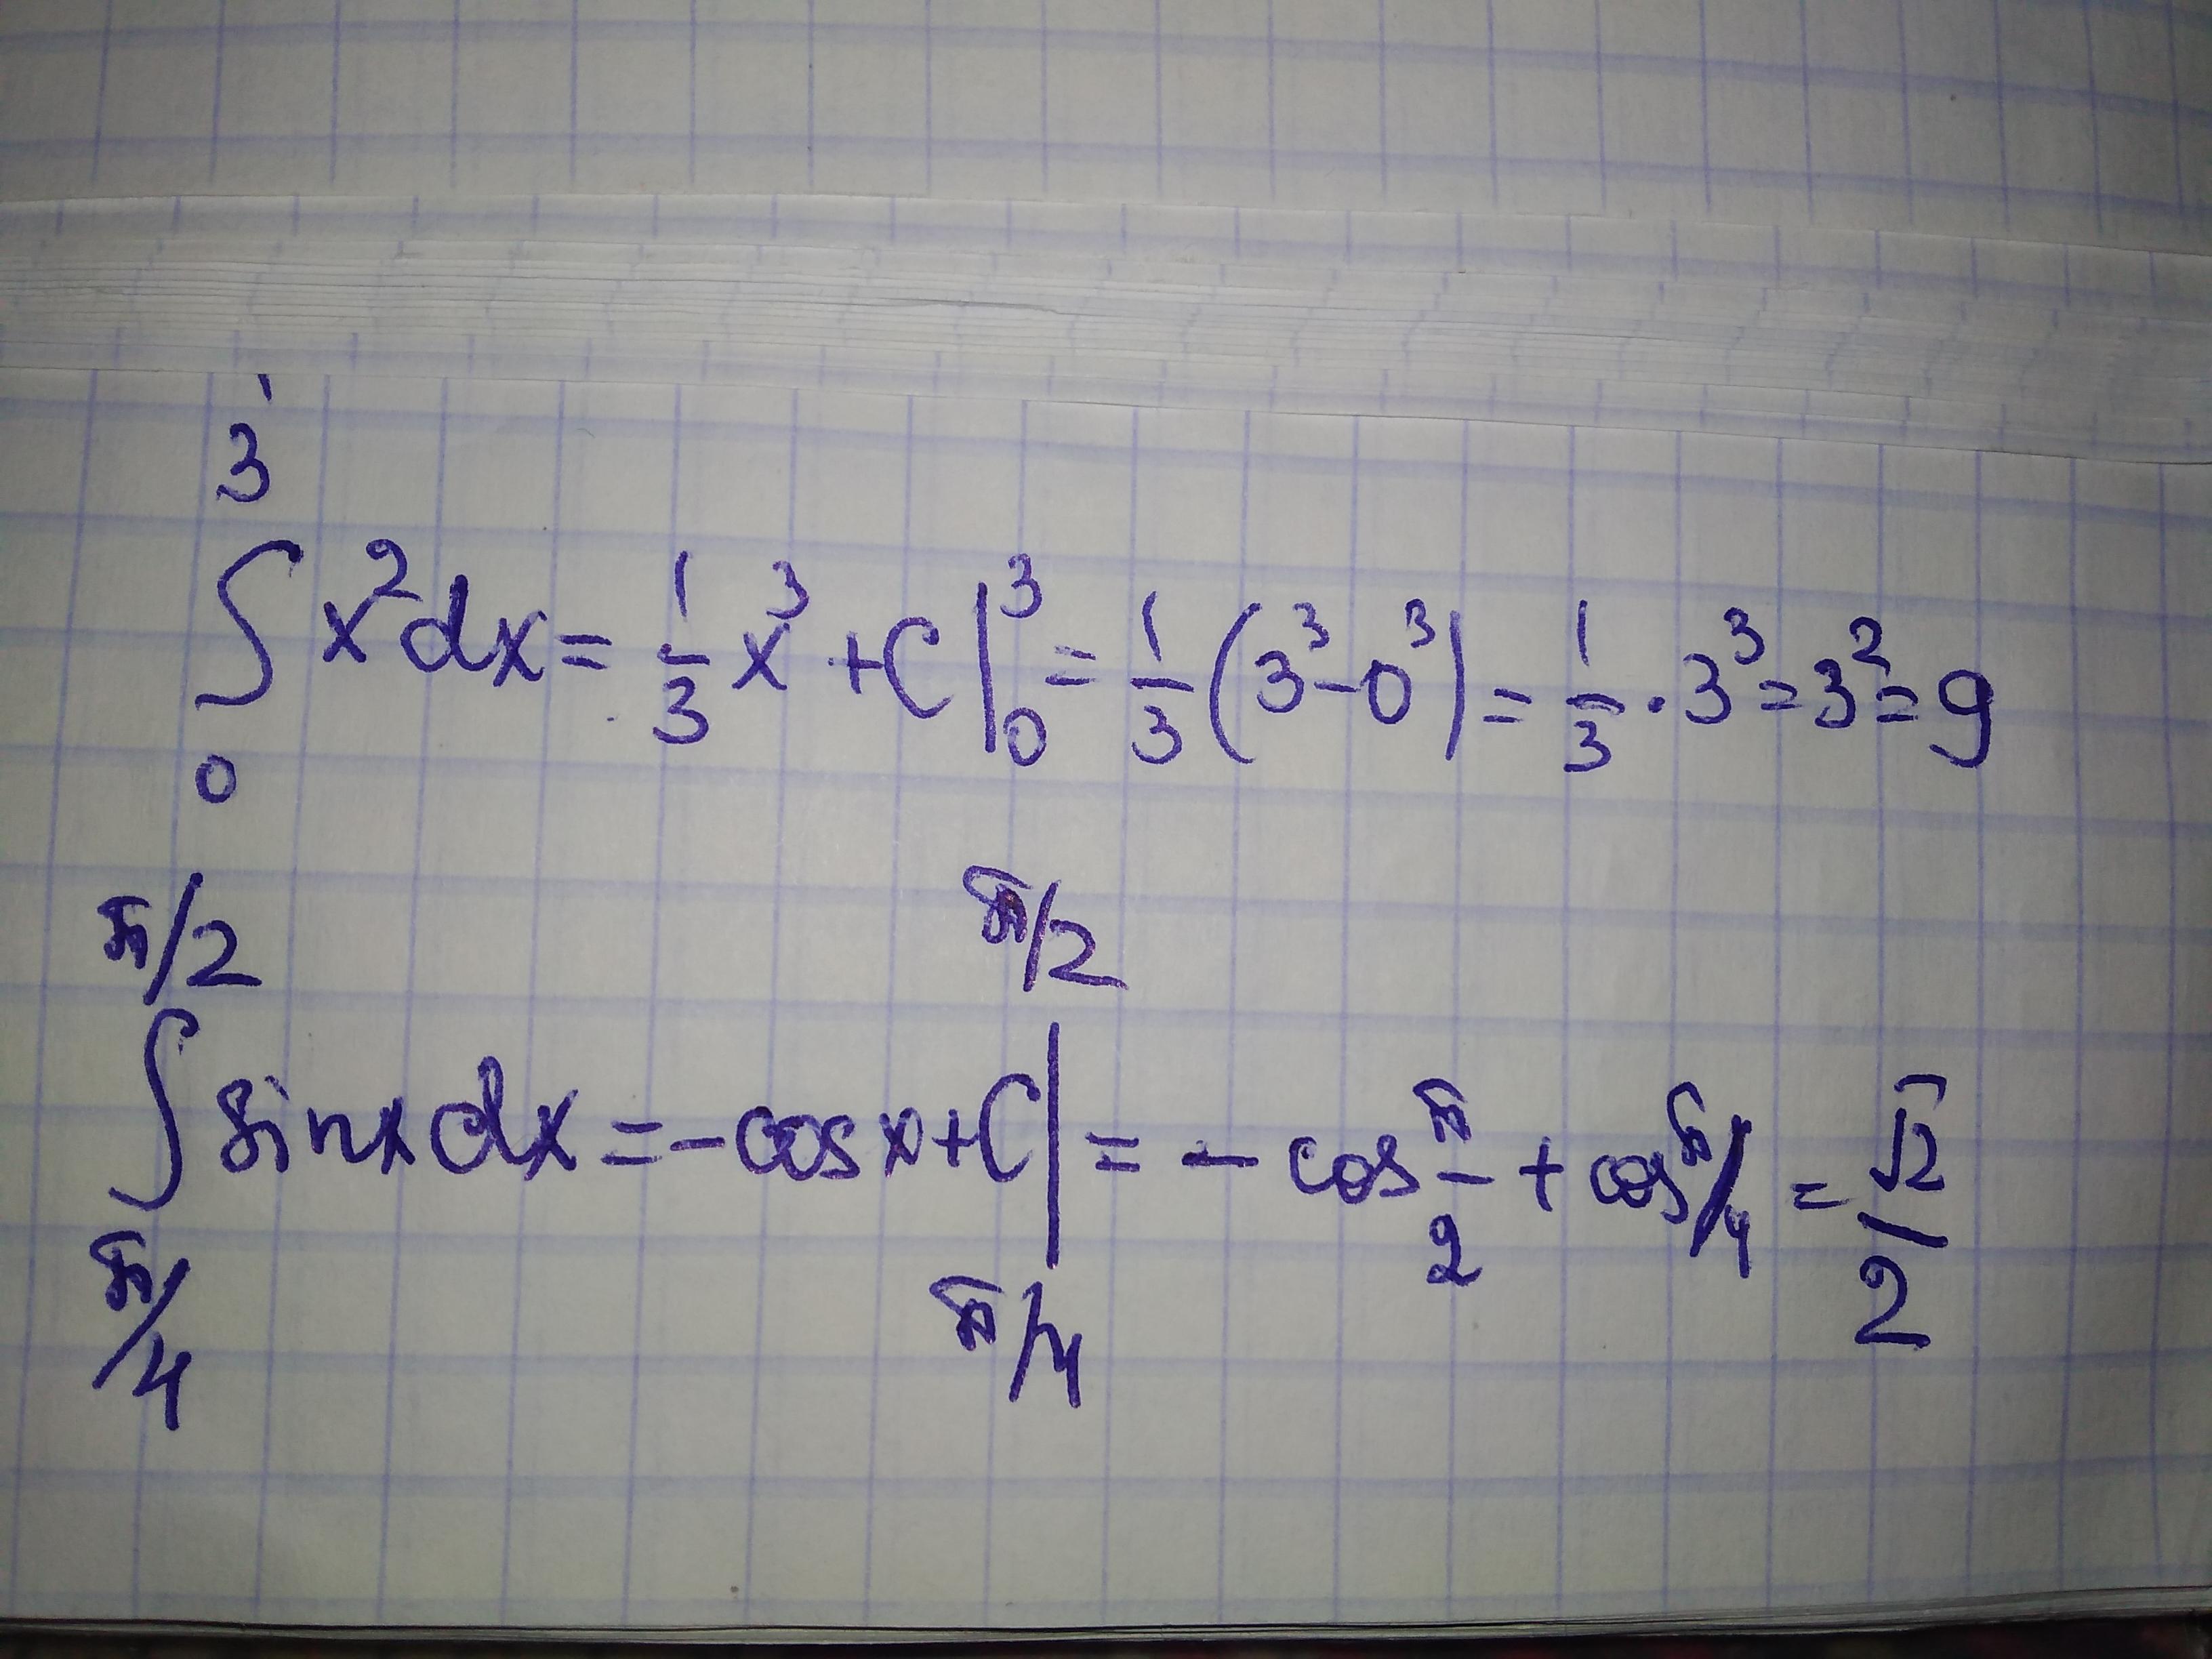 ∫₀³ x²dx = 1/3 x³ + C |₀³ = 1/3 (3³ - 0³) = 1/3 · 3³ = 3² = 9
∫_{π/4}^{π/2} sin x dx = - cos x + C |_{π/4}^{π/2} = - cos π/2 + cos π/4 = √2/2